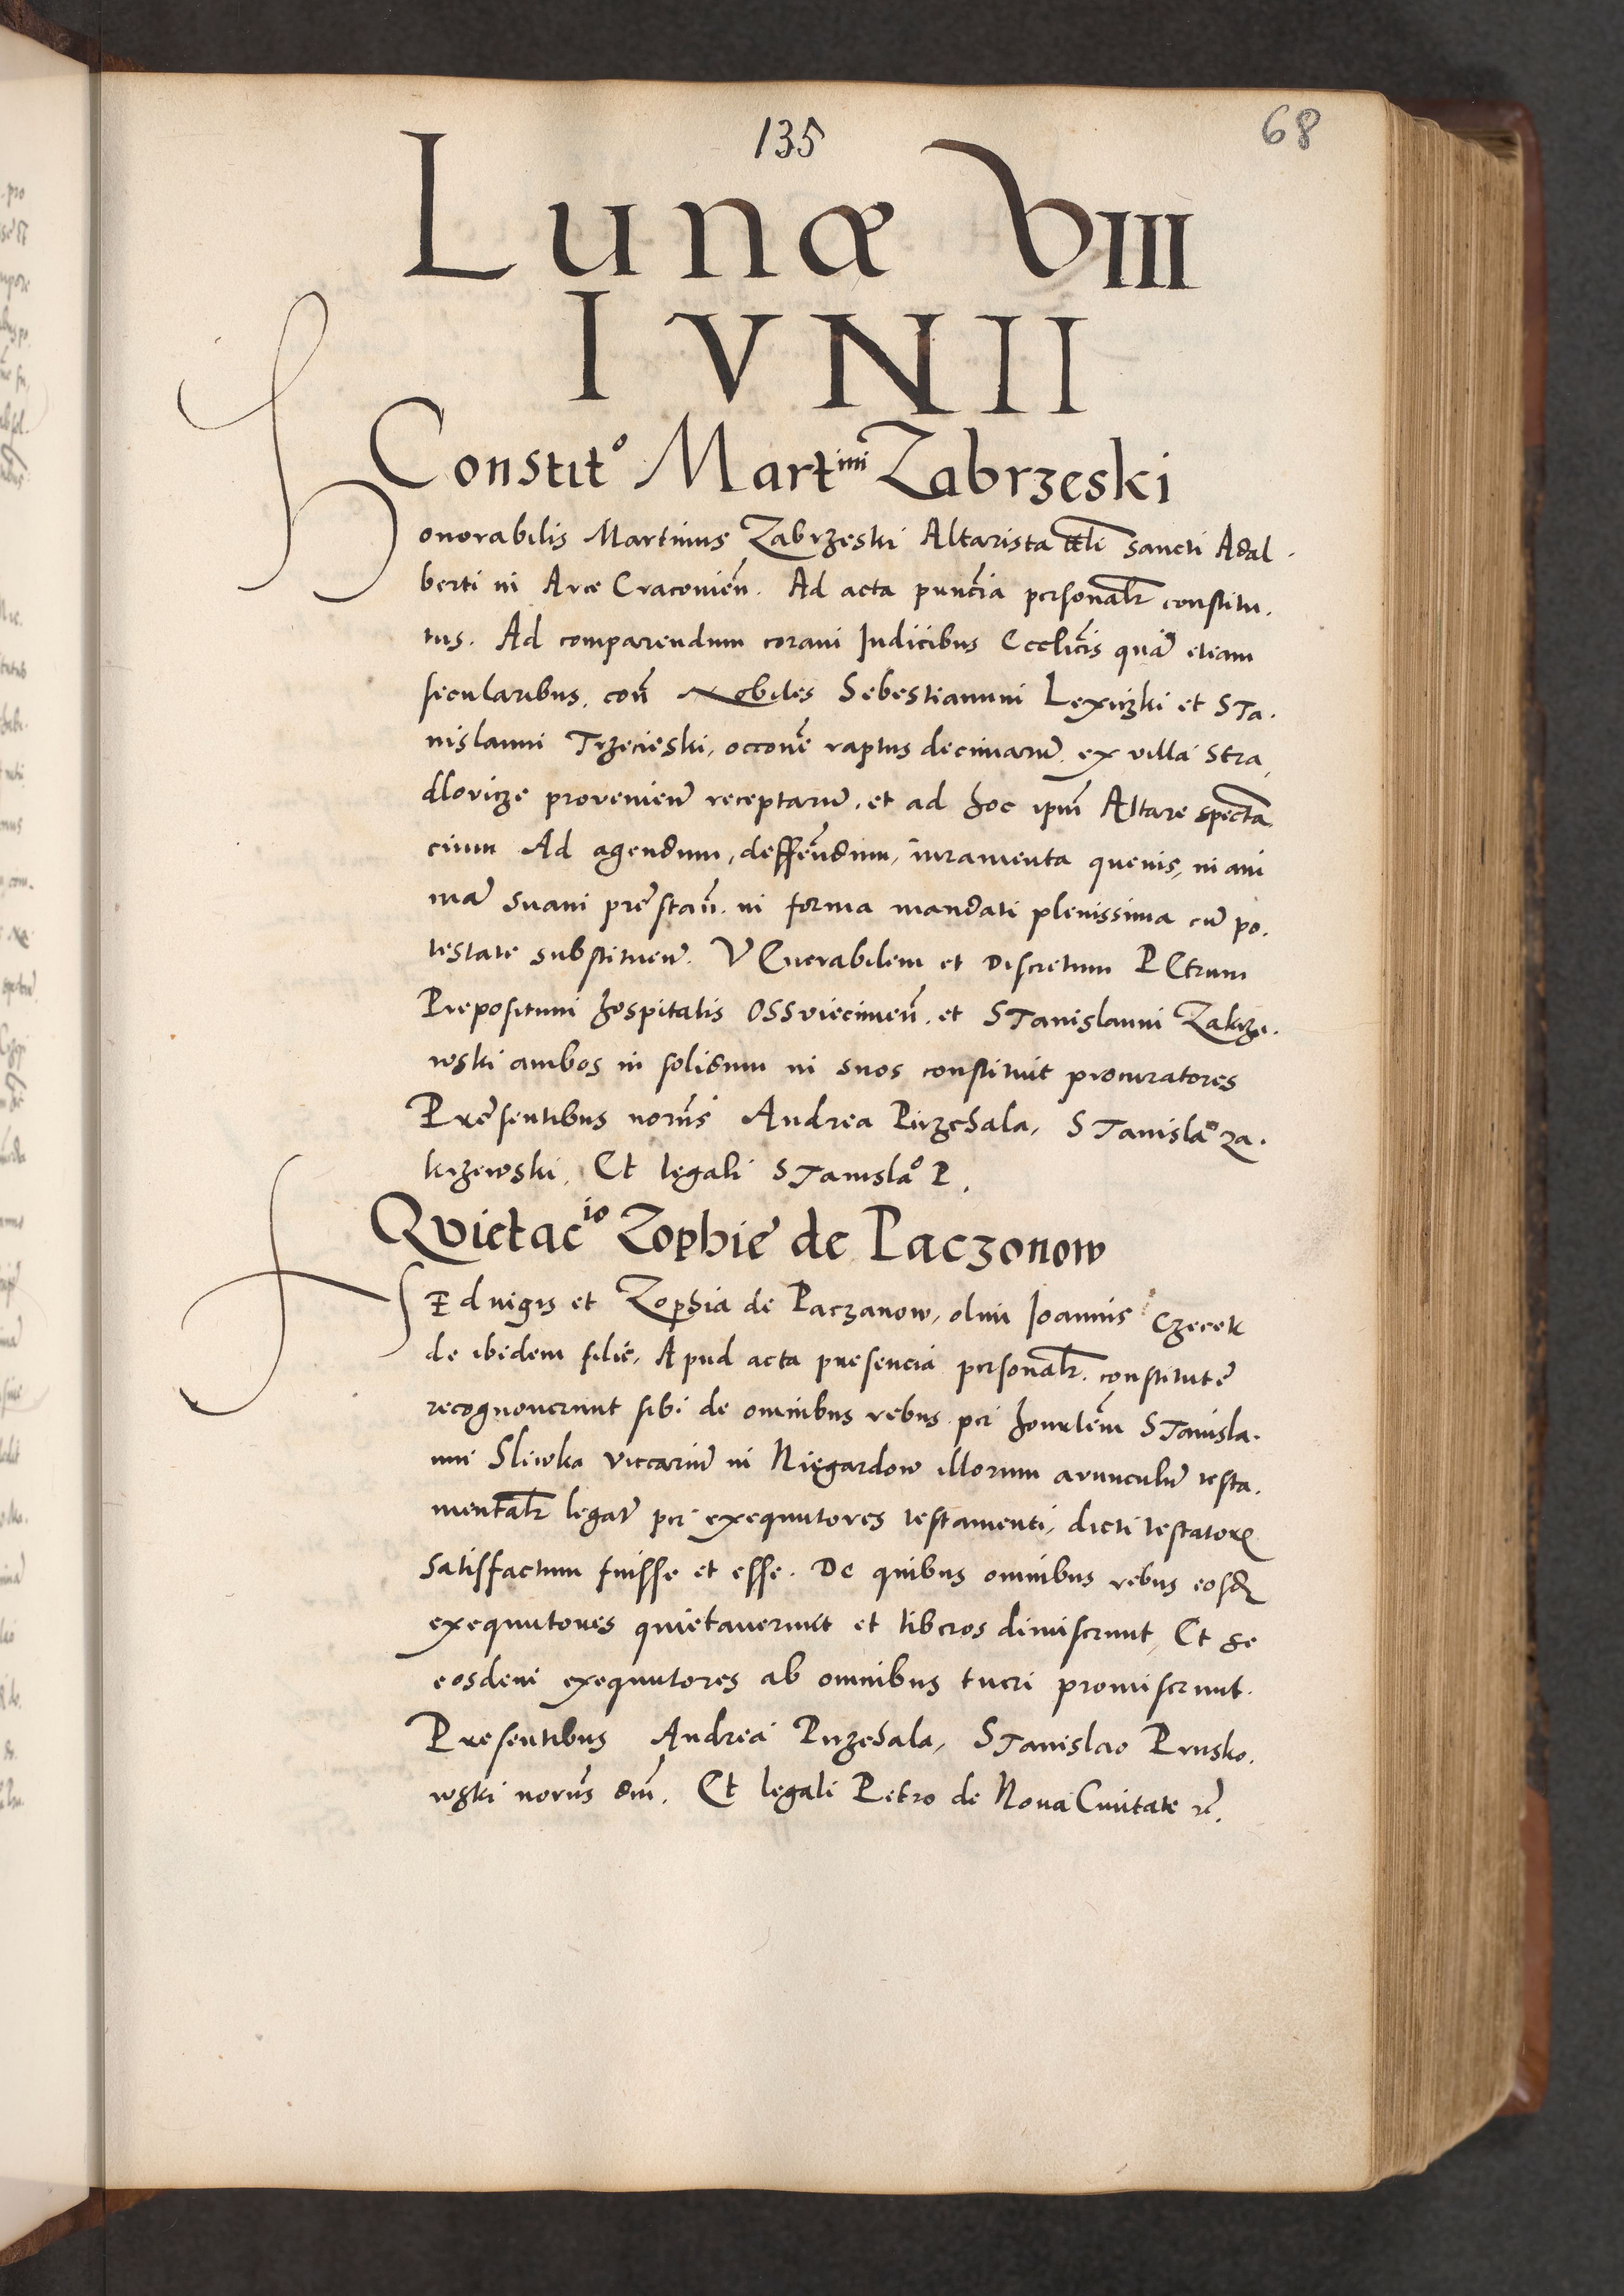 135
68
Lunæ VIII
IVNII
Constit° Martini Zabrzeski
Honorabilis Martinus Zabrzeski Altarista tti Sancti Adal-
berti in Arce Cracovien̄. Ad acta pn̄ncia personalr constitu-
tus. Ad comparendum coram Judicibus Ecclicis quā eteam
secularibus, con̄ Nobiles Sebestianum Lexiczki et STa-
nislaum Trzecieski, occone raptus decimarū ex villa Stra-
dlovicze provenienū receptarū, et ad hoc ipm̄ Altare specta
cium Ad agendum, deffendum, iuramenta quevis, in ani
mā suam prestan̄. in forma mandati plenissima cū po-
testate substituenꝭ. VEnerabilem et Discretum PEtrum
Prepositum hospitalis OSSviecimen̄. et STanislaum Zakrze-
wski ambos in solidum in suos constituit procuratores
Presentibus norīs Andrea Przechala, STanislao Za-
krzewski. Et legali STanislao P.
Qvietacio Zophie de Paczonow
HEdvigis et Zophia de Paczanow, olim Joannis Czecek
de ibidem filie, Apud acta presencia personalr. constitute
recognoverunt sibi de omnibus rebus per honrlem STanisla-
um Sliwka viccariū in Niegardow illorum avunculū testa-
mentalr legatꝭ per exequutores testamenti, dicti testatorꝭ
Satisfactum fuisse et esse. De quibus omnibus rebus eosdꝭ
exequutores quietaverunt et liberos dimiserunt, Et se
eosdem exequutores ab omnibus tueri promiserunt.
Presentibus Andrea Przechala, STanislao Prusko-
wski norīs dm̄. Et legali Petro de Nova Civitate rē.